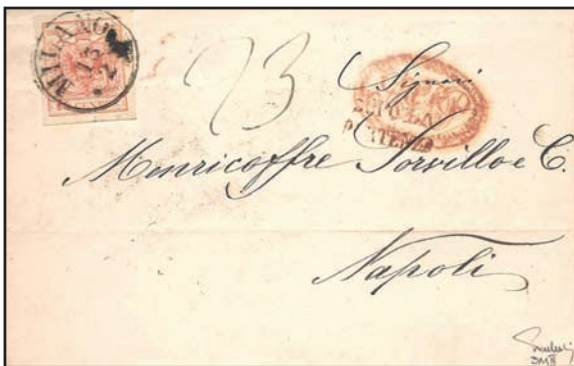 MILANO
15
2
23
Signori
Meuricoffre Sorvillo e C.
Napoli